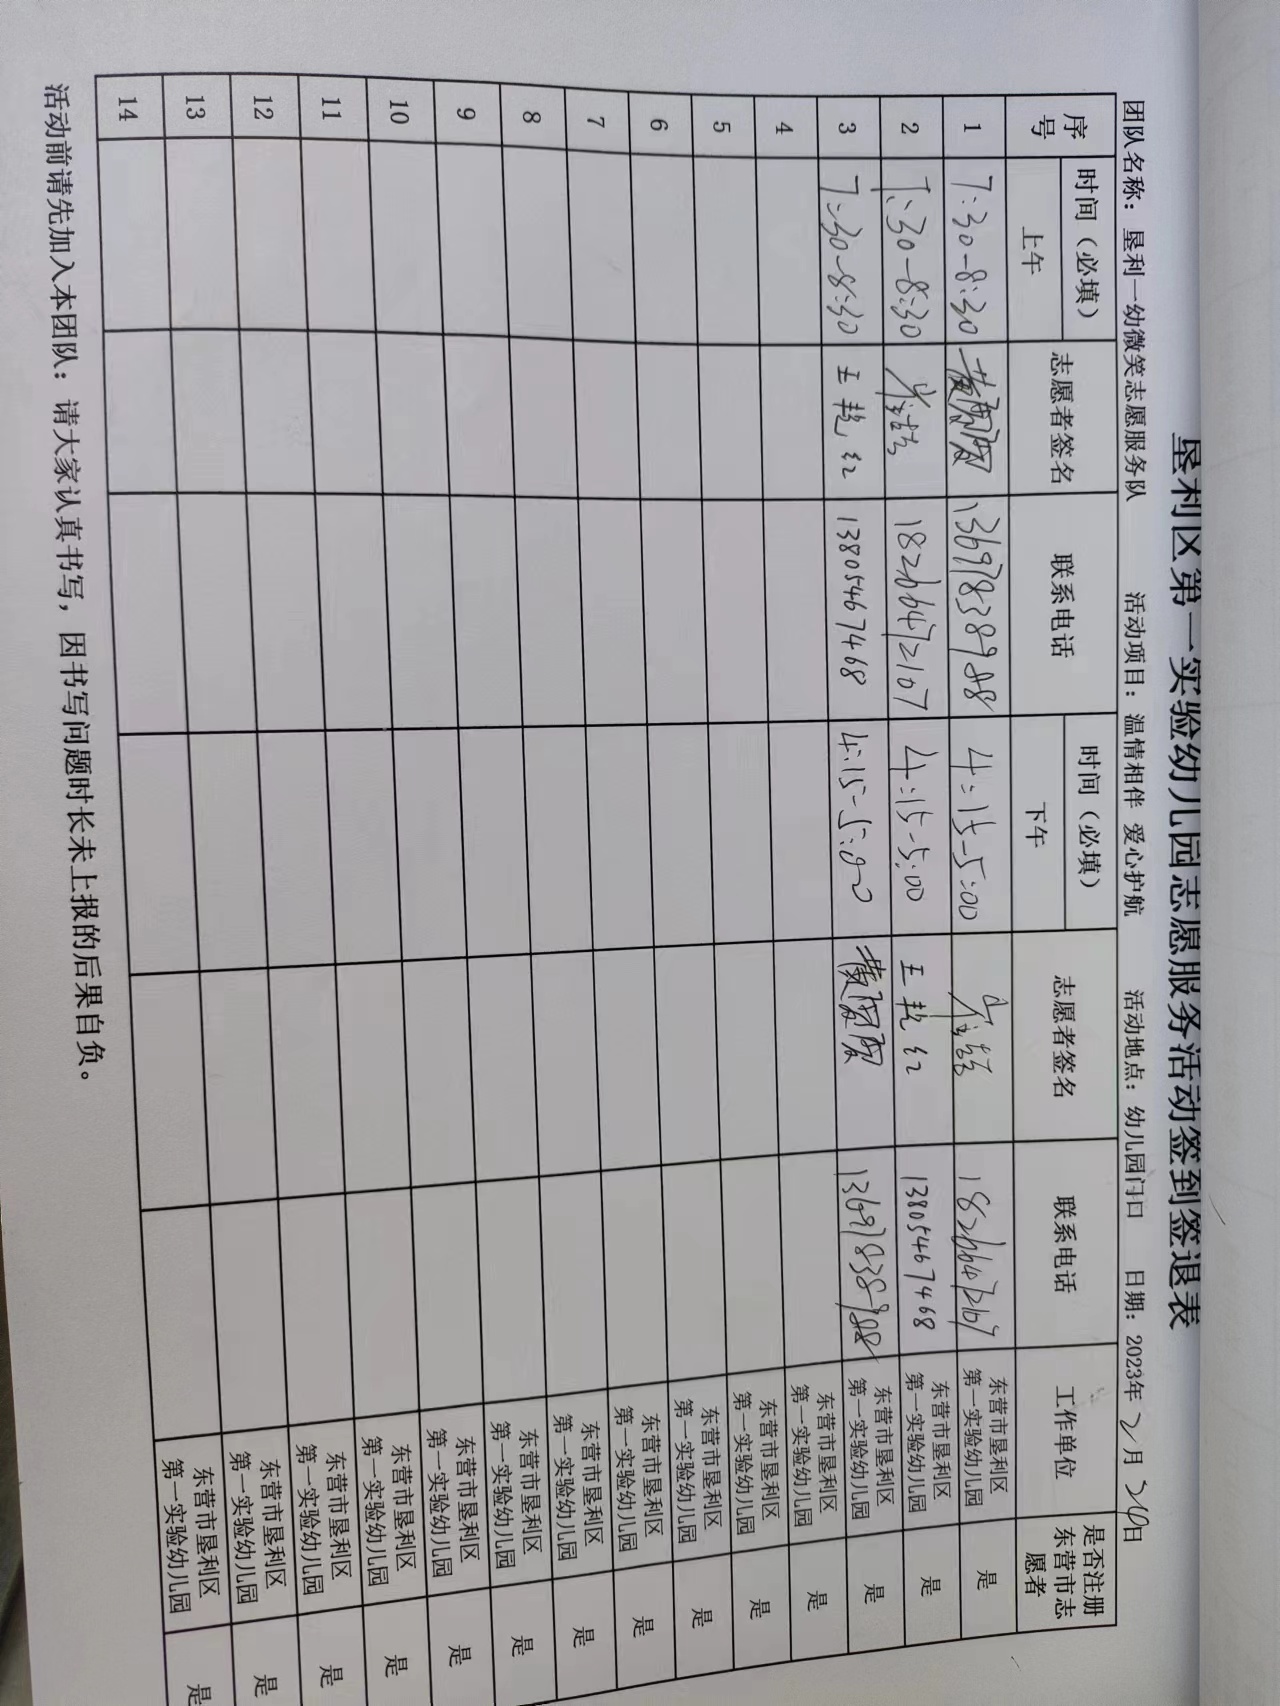 垦利区第一实验幼儿园志愿服务活动签到签退表
团队名称：垦利一幼微笑志愿服务队 活动项目：温情相伴 爱心护航 活动地点：幼儿园门口 日期：2023年2月24日
序号 时间（必填）上午 志愿者签名 联系电话 时间（必填）下午 志愿者签名 联系电话 工作单位 是否注册东营市志愿者
1 7:30-8:30 13697838988 4:15-5:00 18266472107 东营市垦利区第一实验幼儿园 是
2 7:30-8:30 18266472107 4:15-5:00 王艳红 13805467468 东营市垦利区第一实验幼儿园 是
3 7:30-8:30 王艳红 13805467468 4:15-5:00 13697838988 东营市垦利区第一实验幼儿园 是
4 东营市垦利区第一实验幼儿园 是
5 东营市垦利区第一实验幼儿园 是
6 东营市垦利区第一实验幼儿园 是
7 东营市垦利区第一实验幼儿园 是
8 东营市垦利区第一实验幼儿园 是
9 东营市垦利区第一实验幼儿园 是
10 东营市垦利区第一实验幼儿园 是
11 东营市垦利区第一实验幼儿园 是
12 东营市垦利区第一实验幼儿园 是
13 东营市垦利区第一实验幼儿园 是
14 东营市垦利区第一实验幼儿园 是
活动前请先加入本团队：请大家认真书写，因书写问题时长未上报的后果自负。